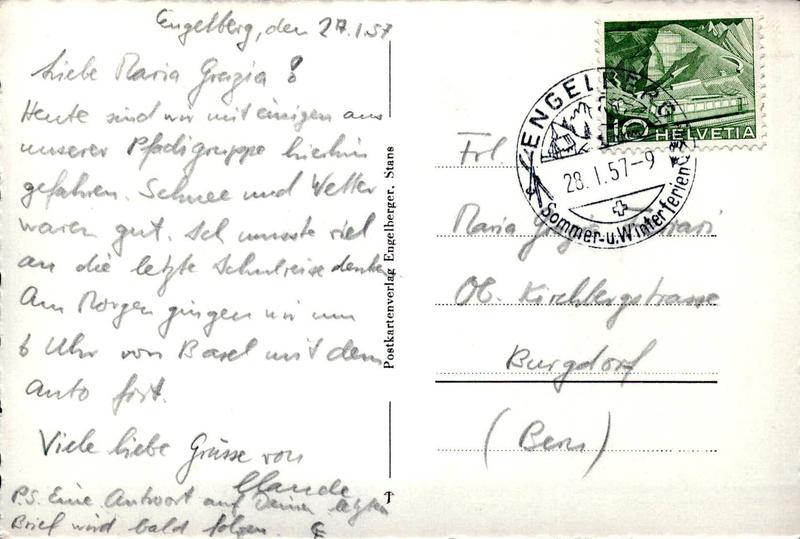 Engelberg, den 27.1.57
Liebe Maria Grazia!
Heute sind wir mit einigen aus
unserer Pfadigruppe hierhin
gefahren. Schnee und Wetter
waren gut. Ich musste viel
an die letzte Schulreise denken.
Am Morgen gingen wir um
6 Uhr von Basel mit dem
Auto fort.
Viele liebe Grüsse von
Claude
P.S. Eine Antwort auf Deinen letzten
Brief wird bald folgen. C
Postkartenverlag Engelberger, Stans
ENGELBERG
28.I.57-9
Sommer-u.Winterferien
10 HELVETIA
Frl
Maria Grazia
Ob. Kirchbergstrasse
Burgdorf
(Bern)